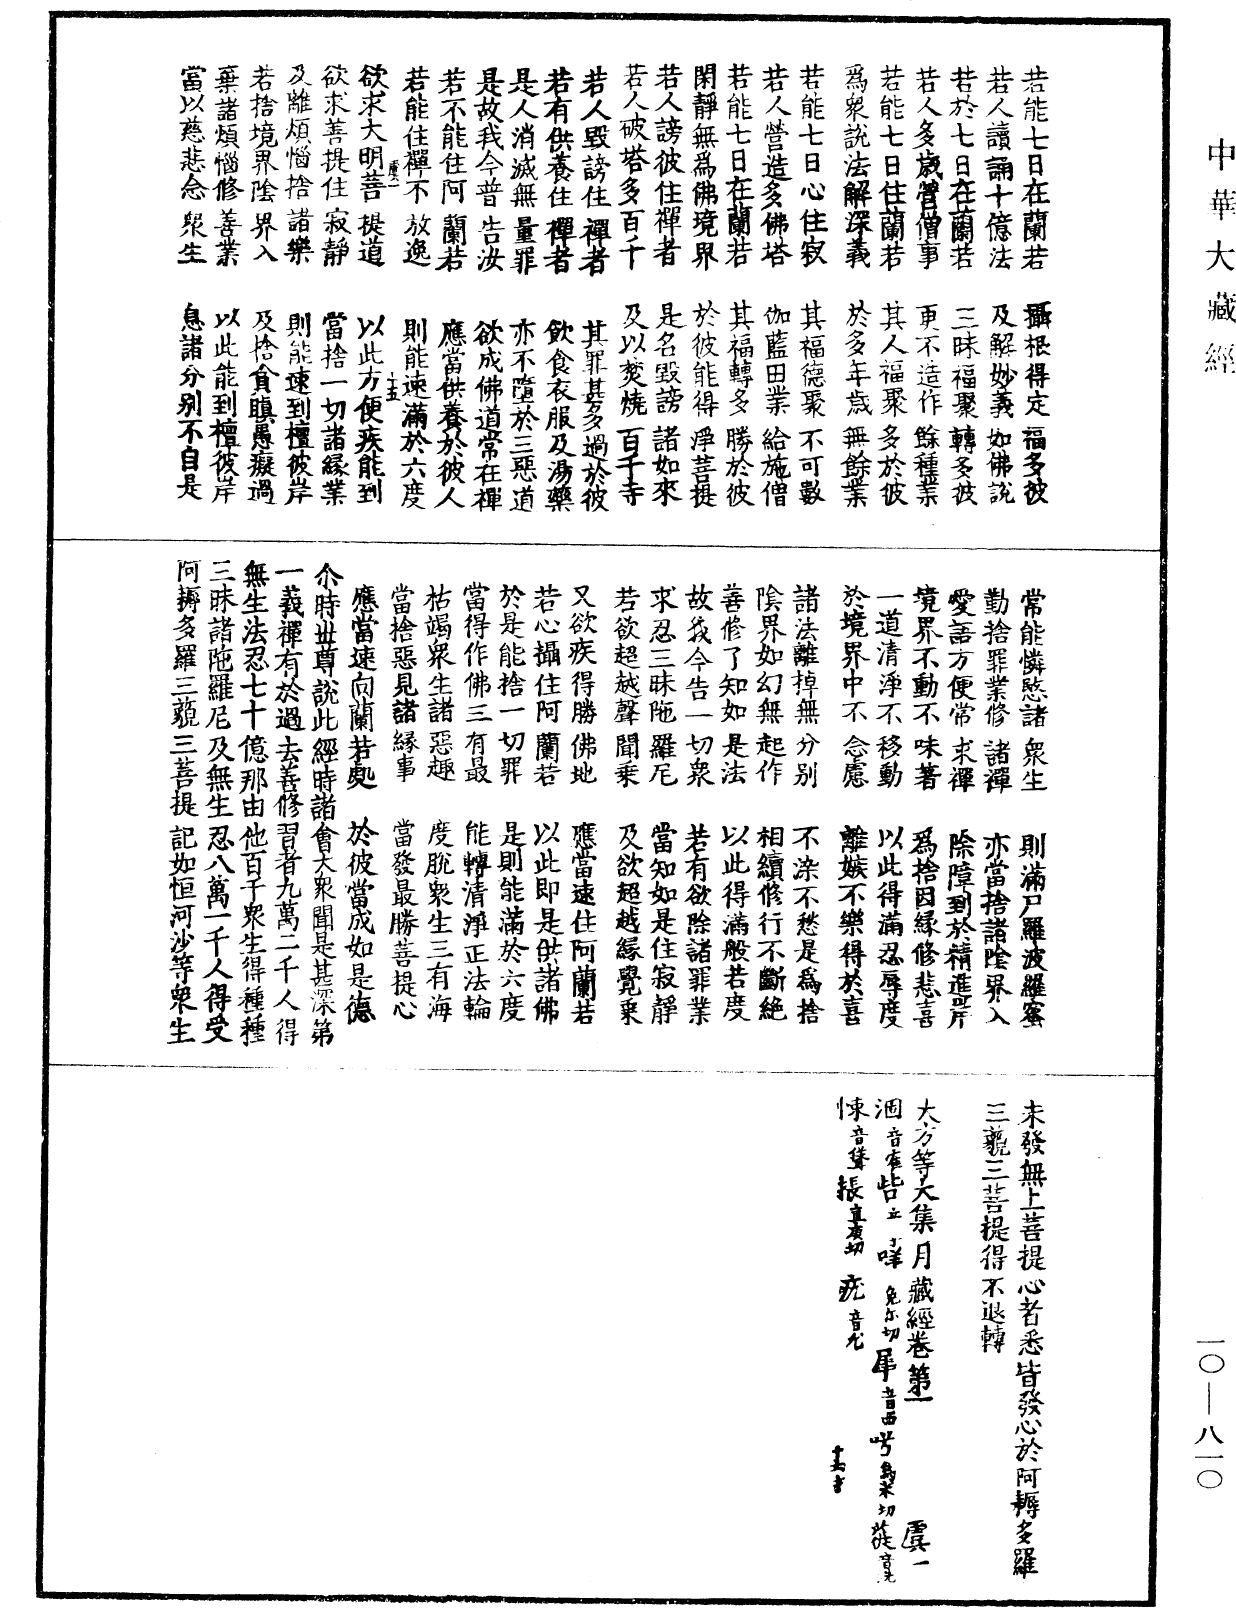 中華大藏經
若能七日在蘭若　攝根得定福多彼
若人讀誦十億法　及解妙義如佛說
若於七日在蘭若　三昧福聚轉多彼
若人多歲營僧事　更不造作餘種業
若能七日住蘭若　其人福聚多於彼
爲衆說法解深義　於多年歲無餘業
若能七日心住寂　其福德聚不可數
若人營造多佛塔　伽藍田業給施僧
若能七日在蘭若　其福轉多勝於彼
閑靜無爲佛境界　於彼能得淨菩提
若人謗彼住禪者　是名毀謗諸如來
若人破塔多百千　及以焚燒百千寺
若人毀謗住禪者　其罪甚多過於彼
若有供養住禪者　飲食衣服及湯藥
是人消滅無量罪　亦不墮於三惡道
是故我今普告汝　欲成佛道常在禪
若不能住阿蘭若　應當供養於彼人
若能住禪不放逸　則能速滿於六度
欲求大明菩提道　以此方便疾能到
欲求菩提住寂靜　當捨一切諸緣業
及離煩惱捨諸樂　則能速到檀彼岸
若捨境界陰界入　及捨貪瞋愚癡過
棄諸煩惱修善業　以此能到檀彼岸
當以慈悲念衆生　息諸分別不自是
常能憐愍諸衆生　則滿尸羅波羅蜜
勤捨罪業修諸禪　亦當捨諸陰界入
愛語方便常求禪　除障到於精進岸
境界不動不味著　爲捨因緣修悲喜
一道清淨不移動　以此得滿忍辱度
於境界中不念慮　離嫉不樂得於喜
諸法離掉無分別　不染不愁是爲捨
陰界如幻無起作　相續修行不斷絕
善修了知如是法　以此得滿般若度
故我今告一切衆　若有欲除諸罪業
求忍三昧陁羅尼　當知如是住寂靜
若欲超越聲聞乘　及欲超越緣覺乘
又欲疾得勝佛地　應當速住阿蘭若
若心攝住阿蘭若　以此即是供諸佛
於是能捨一切罪　是則能滿於六度
當得作佛三有最　能轉清淨正法輪
枯竭衆生諸惡趣　度脫衆生三有海
當捨惡見諸緣事　當發最勝菩提心
應當速向蘭若處　於彼當成如是德
尒時丗尊說此經時諸會大衆聞是甚深第
一義禪有於過去善修習者九萬二千人得
無生法忍七十億那由他百千衆生得種種
三昧諸陁羅尼及無生忍八萬一千人得受
阿耨多羅三藐三菩提記如恒河沙等衆生
未發無上菩提心者悉皆發心於阿耨多羅
三藐三菩提得不退轉
大方等大集月藏經卷第一　虞一
一〇—八一〇